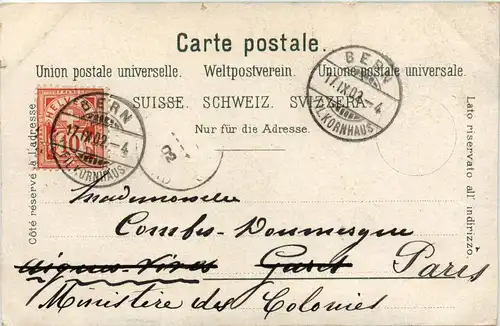 Carte postale.
Union postale universelle. Weltpostverein. Unione postale universale.
SUISSE. SCHWEIZ. SVIZZERA.
Nur für die Adresse.
Côté réservé à l'adresse.
Lato riservato all' indirizzo.
HELVETIA
10
BERN
17.IX.02.-4
FIL.KORNHAUS
BERN
17.IX.02.-4
FIL.KORNHAUS
02
Mademoiselle
Combes-Doumergue
Aigues-Vives Gard Paris
Ministère des Colonies